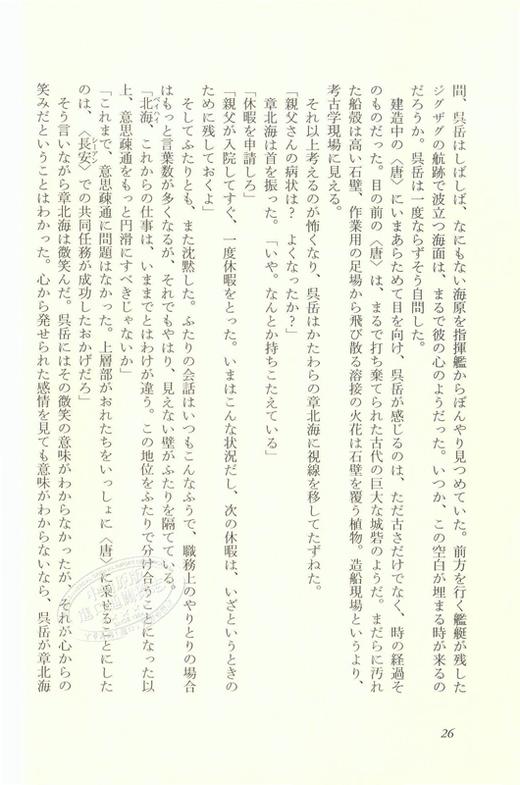 問、呉岳はしばしば、なにもない海原を指揮艦からぼんやり見つめていた。前方を行く艦艇が残した
ジグザグの航跡で波立つ海面は、まるで彼の心のようだった。いつか、この空白が埋まる時が来るの
だろうか。呉岳は一度ならずそう自問した。
建造中の〈唐〉にいまあらためて目を向け、呉岳が感じるのは、ただ古さだけでなく、時の経過そ
のものだった。目の前の〈唐〉は、まるで打ち棄てられた古代の巨大な城砦のようだ。まだらに汚れ
た船殻は高い石壁、作業用の足場から飛び散る溶接の火花は石壁を覆う植物。造船現場というより、
考古学現場に見える。
それ以上考えるのが怖くなり、呉岳はかたわらの章北海に視線を移してたずねた。
「親父さんの病状は？　よくなったか？」
章北海は首を振った。「いや。なんとか持ちこたえている」
「休暇を申請しろ」
「親父が入院してすぐ、一度休暇をとった。いまはこんな状況だし、次の休暇は、いざというときの
ために残しておくよ」
そしてふたりとも、また沈黙した。ふたりの会話はいつもこんなふうで、職務上のやりとりの場合
はもっと言葉数が多くなるが、それでもやはり、見えない壁がふたりを隔てている。
「北海、これからの仕事は、いままでとはわけが違う。この地位をふたりで分け合うことになった以
ベイハイ
上、意思疎通をもっと円滑にすべきじゃないか」
「これまで、意思疎通に問題はなかった。上層部がおれたちをいっしょに〈唐〉に乗せることにした
のは、〈長安〉での共同任務が成功したおかげだろ」
シーアン
そう言いながら章北海は微笑んだ。呉岳にはその微笑の意味がわからなかったが、それが心からの
笑みだということはわかった。心から発せられた感情を見ても意味がわからないなら、呉岳が章北海
26